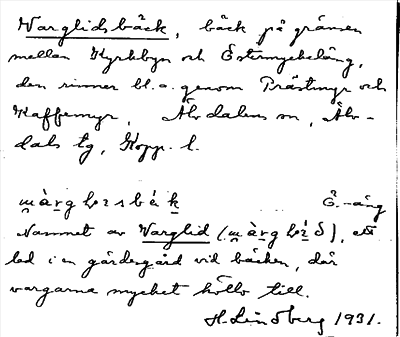 Varglidsbäck, bäck på gränsen
mellan Kyrkbyn och Östermyckeläng,
den rinner bl. a. genom Prästmyr och
Kaffemyr, Älvdalens sn, Älv-
dals tg, Kopp. l.
Ö.-äng
Namnet av Varglid, ett
led i en gärdesgård vid bäcken, där
vargarna mycket höllo till.
H. Lindberg 1931.